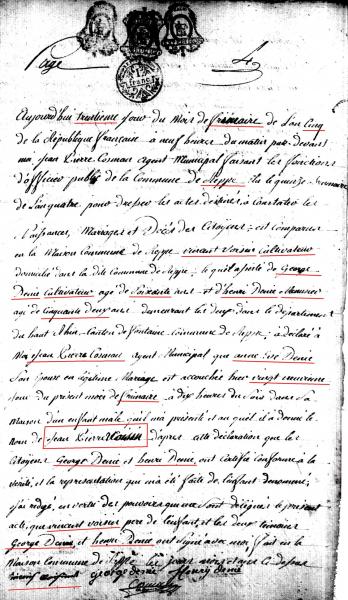 Page 4
Aujourdhui trentieme jour du mois de frimaire de L'an Cinq
de la République française a neuf heures du matin par devant
moi Jean Pierre Cosman agent Municipal faisant les fonctions
d'officier public de la Commune de Reppe
de L'an quatre pour dresser les actes destinés a Constater les
Naissances, Mariages et Décès des Citoyens; est comparue
en la Maison Commune de Reppe vincent Voisin Cultivateur
domicilié dans la dite Commune de Reppe; le quel assisté de George
Denié Cultivateur agé de Soixante ans et d'henri Denié
agé de Cinquante deux ans demeurant les deux dans le département
du haut Rhin Canton de fontaine Commune de Reppe; a déclaré a
Moi Jean Pierre Cosman agent Municipal que anne Denié
Son Epouse en légitime Mariage est accouchée hier vingt neuvieme
jour du présent mois de frimaire a dix heures du Soir dans Sa
Maison d'un enfant mâle quil m'a présenté et au quel il a donné le
Nom de Jean Pierre Voisin d'après cette déclaration que les
Citoyens George Denié et henri Denié ont Certifié Conforme a la
vérité, et la représentation qui m'a été faite de l'enfant denommé;
j'ai redigé, en vertu des pouvoirs qui me Sont délégués le présent
acte, que vincent voisin pere de l'enfant, et les deux temoins
George Denié, et henri Denié ont Signé avec moi, fait en la
Maison Commune de Reppe les jour mois et an ci dessus
george denié henry denié